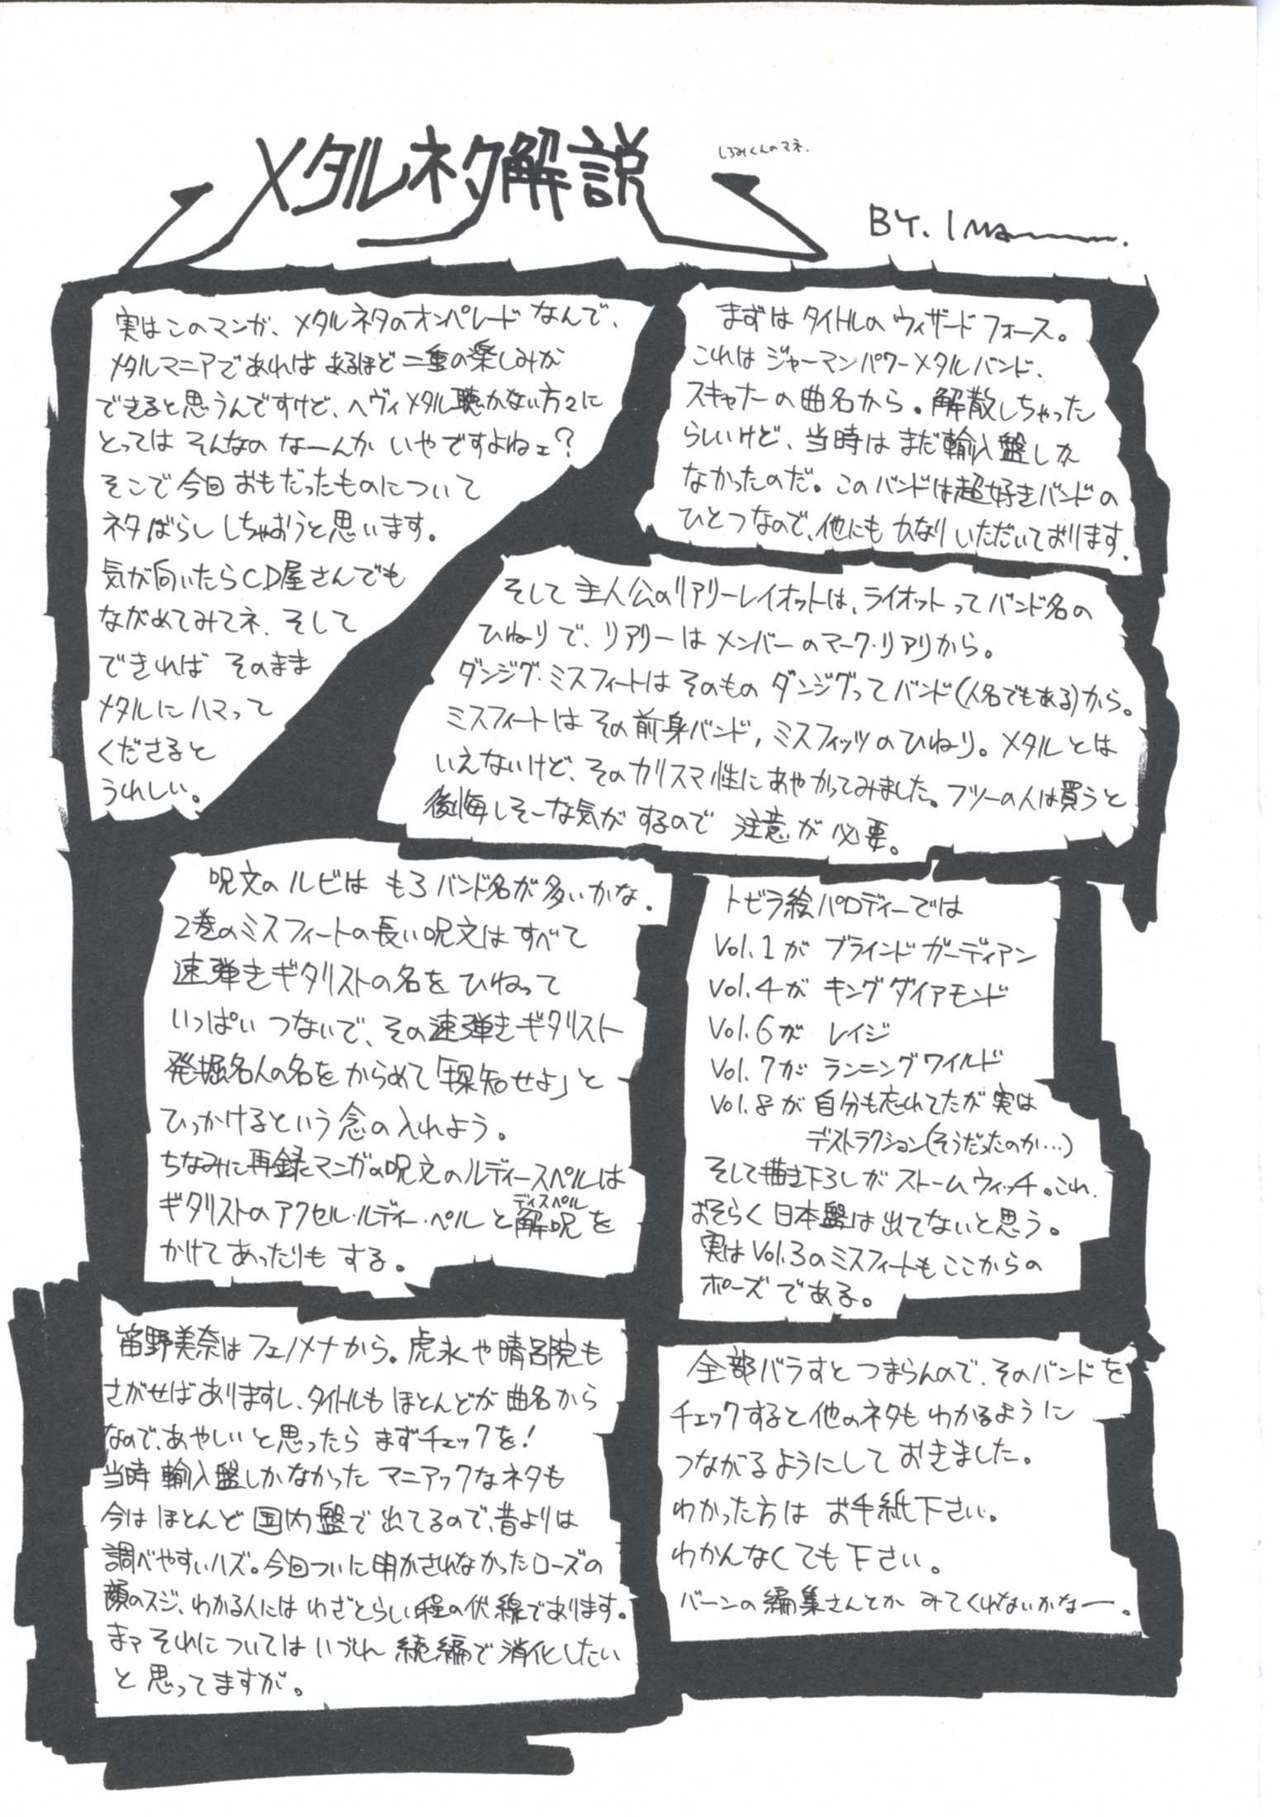 メタルネタ解説
しろみくんのマネ.
BY. I
実はこのマンガ、メタルネタのオンパレードなんで、
メタルマニアであればあるほど二重の楽しみが
できると思うんですけど、ヘヴィメタル聴かない方々に
とってはそんなのなーんかいやですよねェ?
そこで今回おもだったものについて
ネタばらししちゃおうと思います。
気が向いたらCD屋さんでも
ながめてみてネ.そして
できればそのまま
メタルにハマって
くださると
うれしい。
まずはタイトルのウィザードフォース。
これはジャーマンパワーメタルバンド、
スキャナーの曲名から。解散しちゃった
らしいけど、当時はまだ輸入盤しか
なかったのだ。このバンドは超好きバンドの
ひとつなので、他にもかなりいただいております.
そして主人公のリアリーレイオットは、ライオットってバンド名の
ひねりで、リアリーはメンバーのマーク・リアリから。
ダンジグ・ミスフィートはそのものダンジグってバンド(人名でもある)から。
ミスフィートはその前身バンド,ミスフィッツのひねり。メタルとは
いえないけど、そのカリスマ性にあやかってみました。フツーの人は買うと
後悔しそーな気がするので注意が必要。
呪文のルビはもろバンド名が多いかな.
2巻のミスフィートの長い呪文はすべて
速弾きギタリストの名をひねって
いっぱいつないで、その速弾きギタリスト
発掘名人の名をからめて「探知せよ」と
ひっかけるという念の入れよう。
ちなみに再録マンガの呪文のルディースペルは
ギタリストのアクセル・ルディー・ペルと解呪(ディスペル)を
かけてあったりもする。
トビラ絵パロディーでは
Vol.1がブラインドガーディアン
Vol.4がキングダイアモンド
Vol.6がレイジ
Vol.7がランニングワイルド
Vol.8が自分も忘れてたが実は
デストラクション(そうだったのか…)
そして描き下ろしがストームウィッチ。これ、
おそらく日本盤は出てないと思う。
実はVol.3のミスフィートもここからの
ポーズである。
笛野美奈はフェノメナから。虎永や晴呂院も
さがせばありますし、タイトルもほとんどが曲名から
なので、あやしいと思ったらまずチェックを!
当時輸入盤しかなかったマニアックなネタも
今はほとんど国内盤で出てるので、昔よりは
調べやすいハズ。今回ついに明かされなかったローズの
顔のスジ、わかる人にはわざとらしい程の伏線であります。
まァそれについてはいづれ続編で消化したい
と思ってますが。
全部バラすとつまらんので、そのバンドを
チェックすると他のネタもわかるように
つながるようにしておきました。
わかった方はお手紙下さい。
わかんなくても下さい。
バーンの編集さんとかみてくれないかなー。